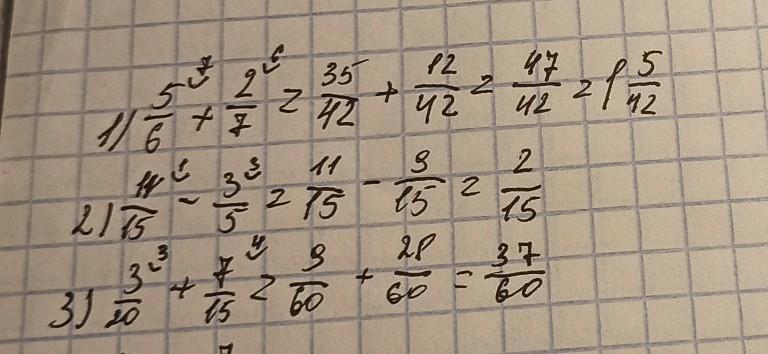 1) 5/6 ⁷ + 2/7 ⁶ = 35/42 + 12/42 = 47/42 = 1 5/42
2) 11/15 ¹ - 3/5 ³ = 11/15 - 9/15 = 2/15
3) 3/20 ³ + 7/15 ⁴ = 9/60 + 28/60 = 37/60
7